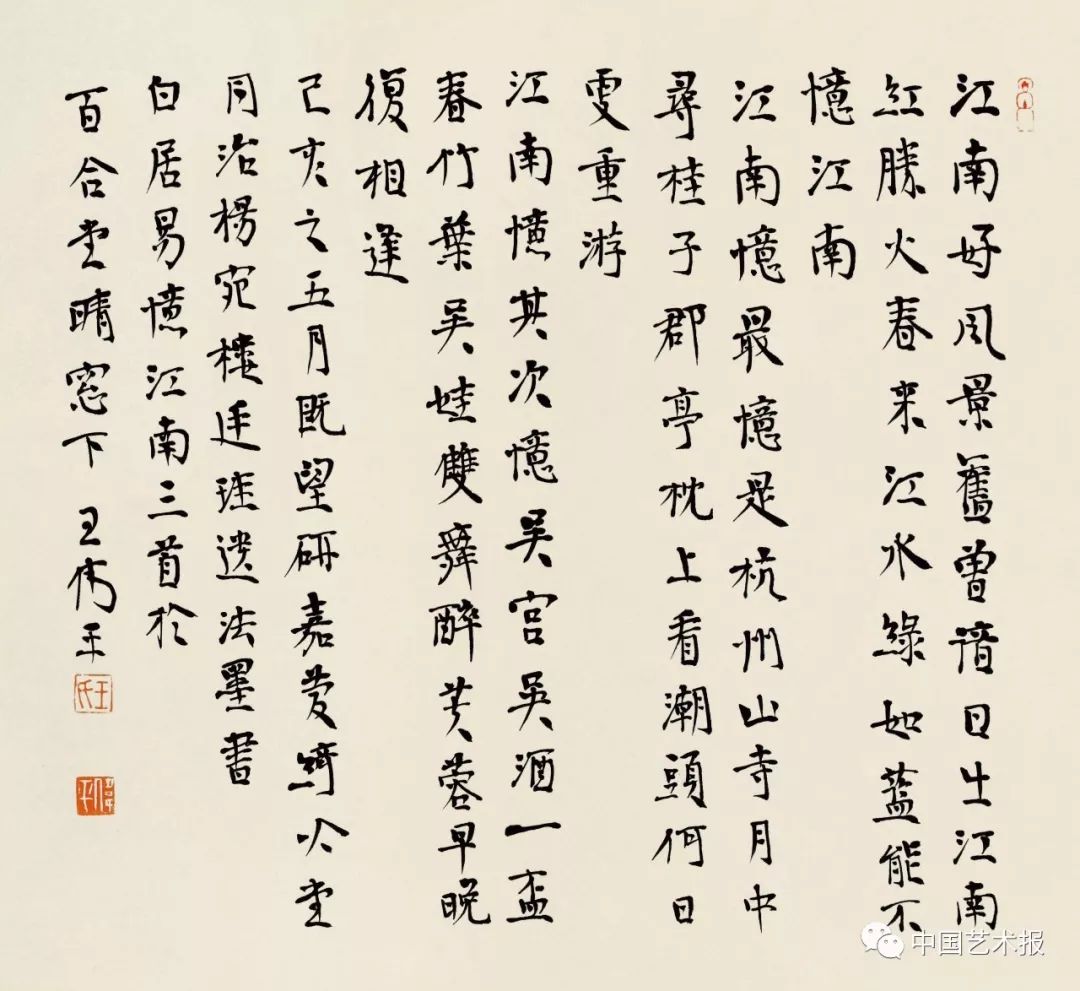 江南好风景舊曾諳日出江南
紅勝火春来江水綠如藍能不
憶江南
江南憶最憶是杭州山寺月中
尋桂子郡亭枕上看潮頭何日
更重游
江南憶其次憶吴宫吴酒一盃
春竹葉吴娃雙舞醉芙蓉早晚
復相逢
己亥之五月既望研嘉慶綺吟堂
同治楊宛樓廷珪遗法墨書
白居易憶江南三首於
百合堂晴窓下 王偉平
王氏
偉平
中国艺术报